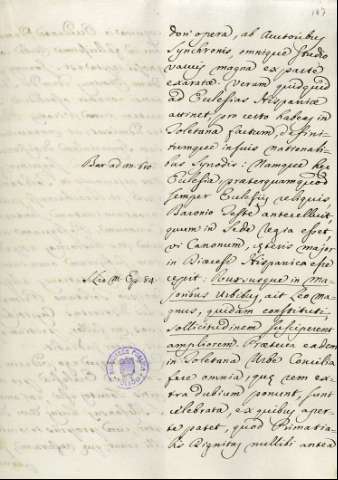 187
don opera, ab Auctoribus
Synchronis, omnique studio
vacuis magna ex parte
exaratæ. Verum quidquid
ad Ecclesias Hispaniæ
attinet, pro certo habeas in
Toletana factum, deffini-
tumque in suis nationali-
bus Synodis: Namque hæc
Bar ad an. 610.
Ecclesia præterquamquod
semper Ecclesiis reliquis,
Baronio teste antecelluit,
quum in Sede Regia esset
vi Canonum, cæteris major
in Diœcesi Hispanica esse
S. Leo M. Ep. 84.
cepit: Rursusque in ma-
joribus Urbibus, ait Leo Ma-
gnus, quidam constituti,
sollicitudinem susciperent
ampliorem. Præterea eadem
in Toletana Urbe Concilia
fere omnia, quæ rem ex-
tra dubium ponunt, sunt
celebrata, ex quibus aper-
te patet, quod Primatia-
lis Dignitas nulliti antea